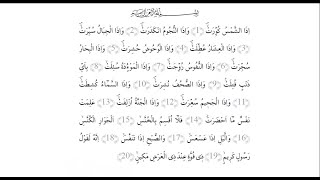 بسم الله الرحمن الرحيم
إِذَا الشَّمْسُ كُوِّرَتْ (1) وَإِذَا النُّجُومُ انْكَدَرَتْ (2) وَإِذَا الْجِبَالُ سُيِّرَتْ
(3) وَإِذَا الْعِشَارُ عُطِّلَتْ (4) وَإِذَا الْوُحُوشُ حُشِرَتْ (5) وَإِذَا الْبِحَارُ
سُجِّرَتْ (6) وَإِذَا النُّفُوسُ زُوِّجَتْ (7) وَإِذَا الْمَوْءُودَةُ سُئِلَتْ (8) بِأَيِّ
ذَنْبٍ قُتِلَتْ (9) وَإِذَا الصُّحُفُ نُشِرَتْ (10) وَإِذَا السَّمَاءُ كُشِطَتْ
(11) وَإِذَا الْجَحِيمُ سُعِّرَتْ (12) وَإِذَا الْجَنَّةُ أُزْلِفَتْ (13) عَلِمَتْ
نَفْسٌ مَا أَحْضَرَتْ (14) فَلَا أُقْسِمُ بِالْخُنَّسِ (15) الْجَوَارِ الْكُنَّسِ
(16) وَاللَّيْلِ إِذَا عَسْعَسَ (17) وَالصُّبْحِ إِذَا تَنَفَّسَ (18) إِنَّهُ لَقَوْلُ
رَسُولٍ كَرِيمٍ (19) ذِي قُوَّةٍ عِنْدَ ذِي الْعَرْشِ مَكِينٍ (20)